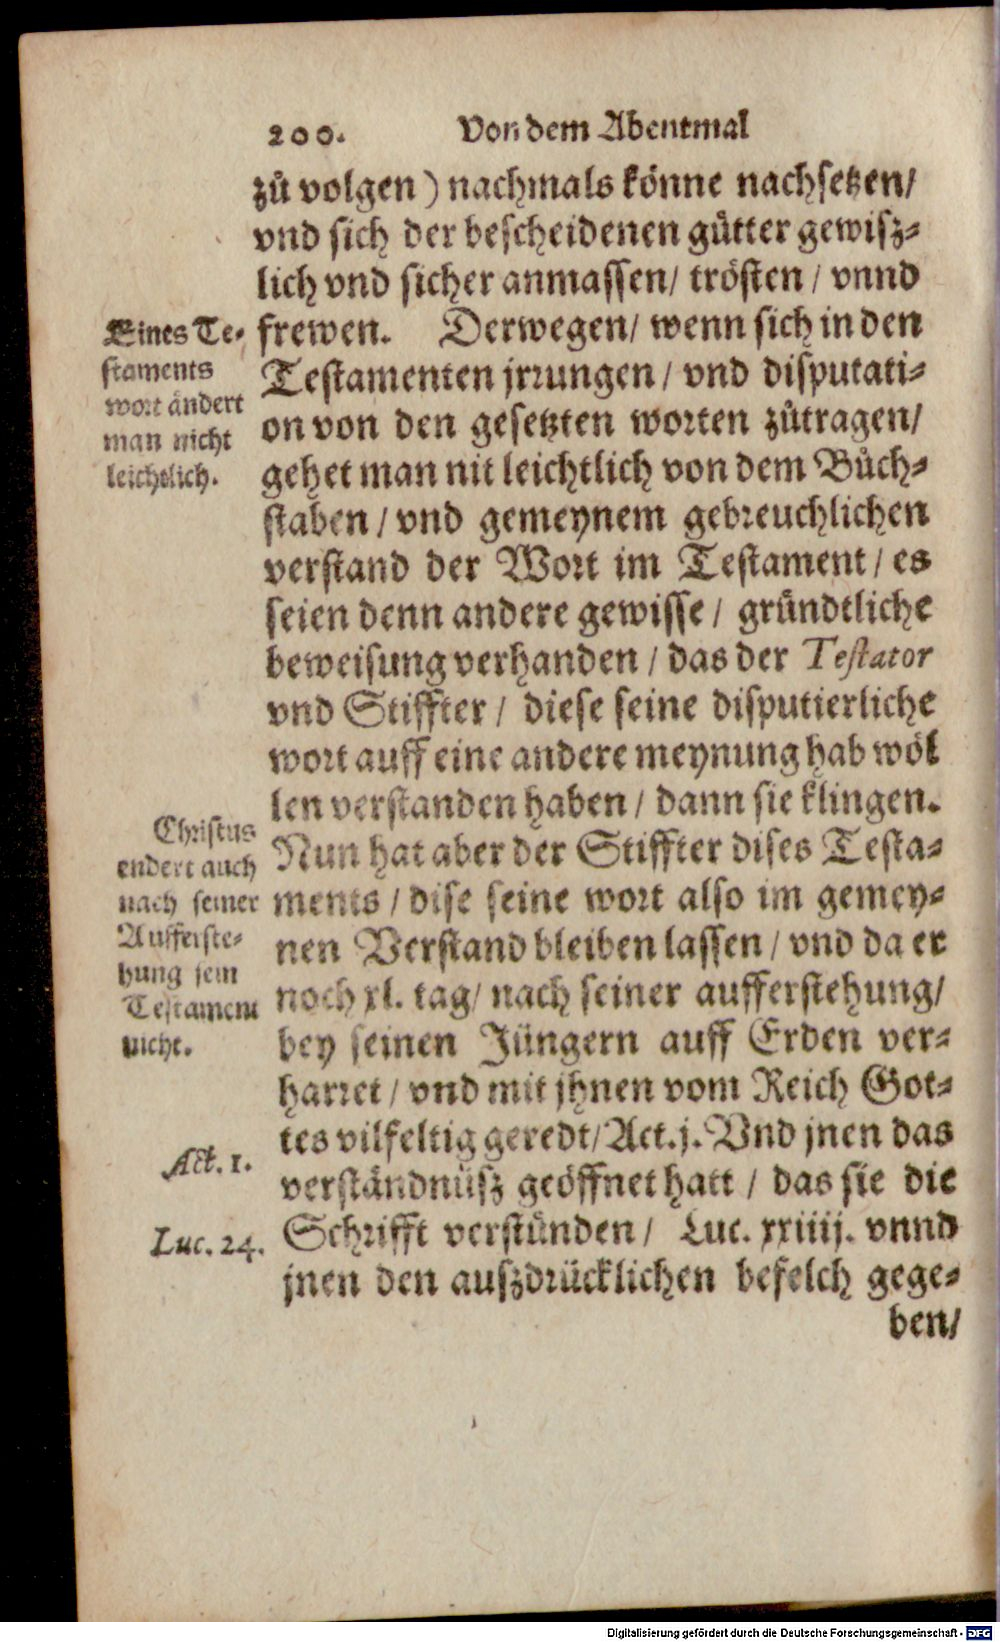 200. Von dem Abentmal
zů volgen) nachmals könne nachsetzen/
vnd sich der bescheidenen gütter gewisz-
lich vnd sicher anmassen/ trösten / vnnd
frewen. Derwegen/ wenn sich in den
Testamenten jrrungen / vnd disputati-
on von den gesetzten worten zůtragen/
gehet man nit leichtlich von dem Bůch-
staben / vnd gemeynem gebreuchlichen
verstand der Wort im Testament / es
seien denn andere gewisse / gründtliche
beweisung verhanden / das der Testator
vnd Stiffter / diese seine disputierliche
wort auff eine andere meynung hab wöl
len verstanden haben / dann sie klingen.
Nun hat aber der Stiffter dises Testa-
ments / dise seine wort also im gemey-
nen Verstand bleiben lassen / vnd da er
noch xl. tag/ nach seiner aufferstehung/
bey seinen Jüngern auff Erden ver-
harret / vnd mit jhnen vom Reich Got-
tes vilfeltig geredt/ Act. j. Vnd jnen das
verständnüsz geöffnet hatt / das sie die
Schrifft verstünden / Luc. xxiiij. vnnd
jnen den auszdrücklichen befelch gege-
ben/
Eines Te-
staments
wort ändert
man nicht
leichtlich.
Christus
endert auch
nach seiner
Aufferste-
hung sein
Testament
nicht.
Act. 1.
Luc. 24.
Digitalisierung gefördert durch die Deutsche Forschungsgemeinschaft - DFG